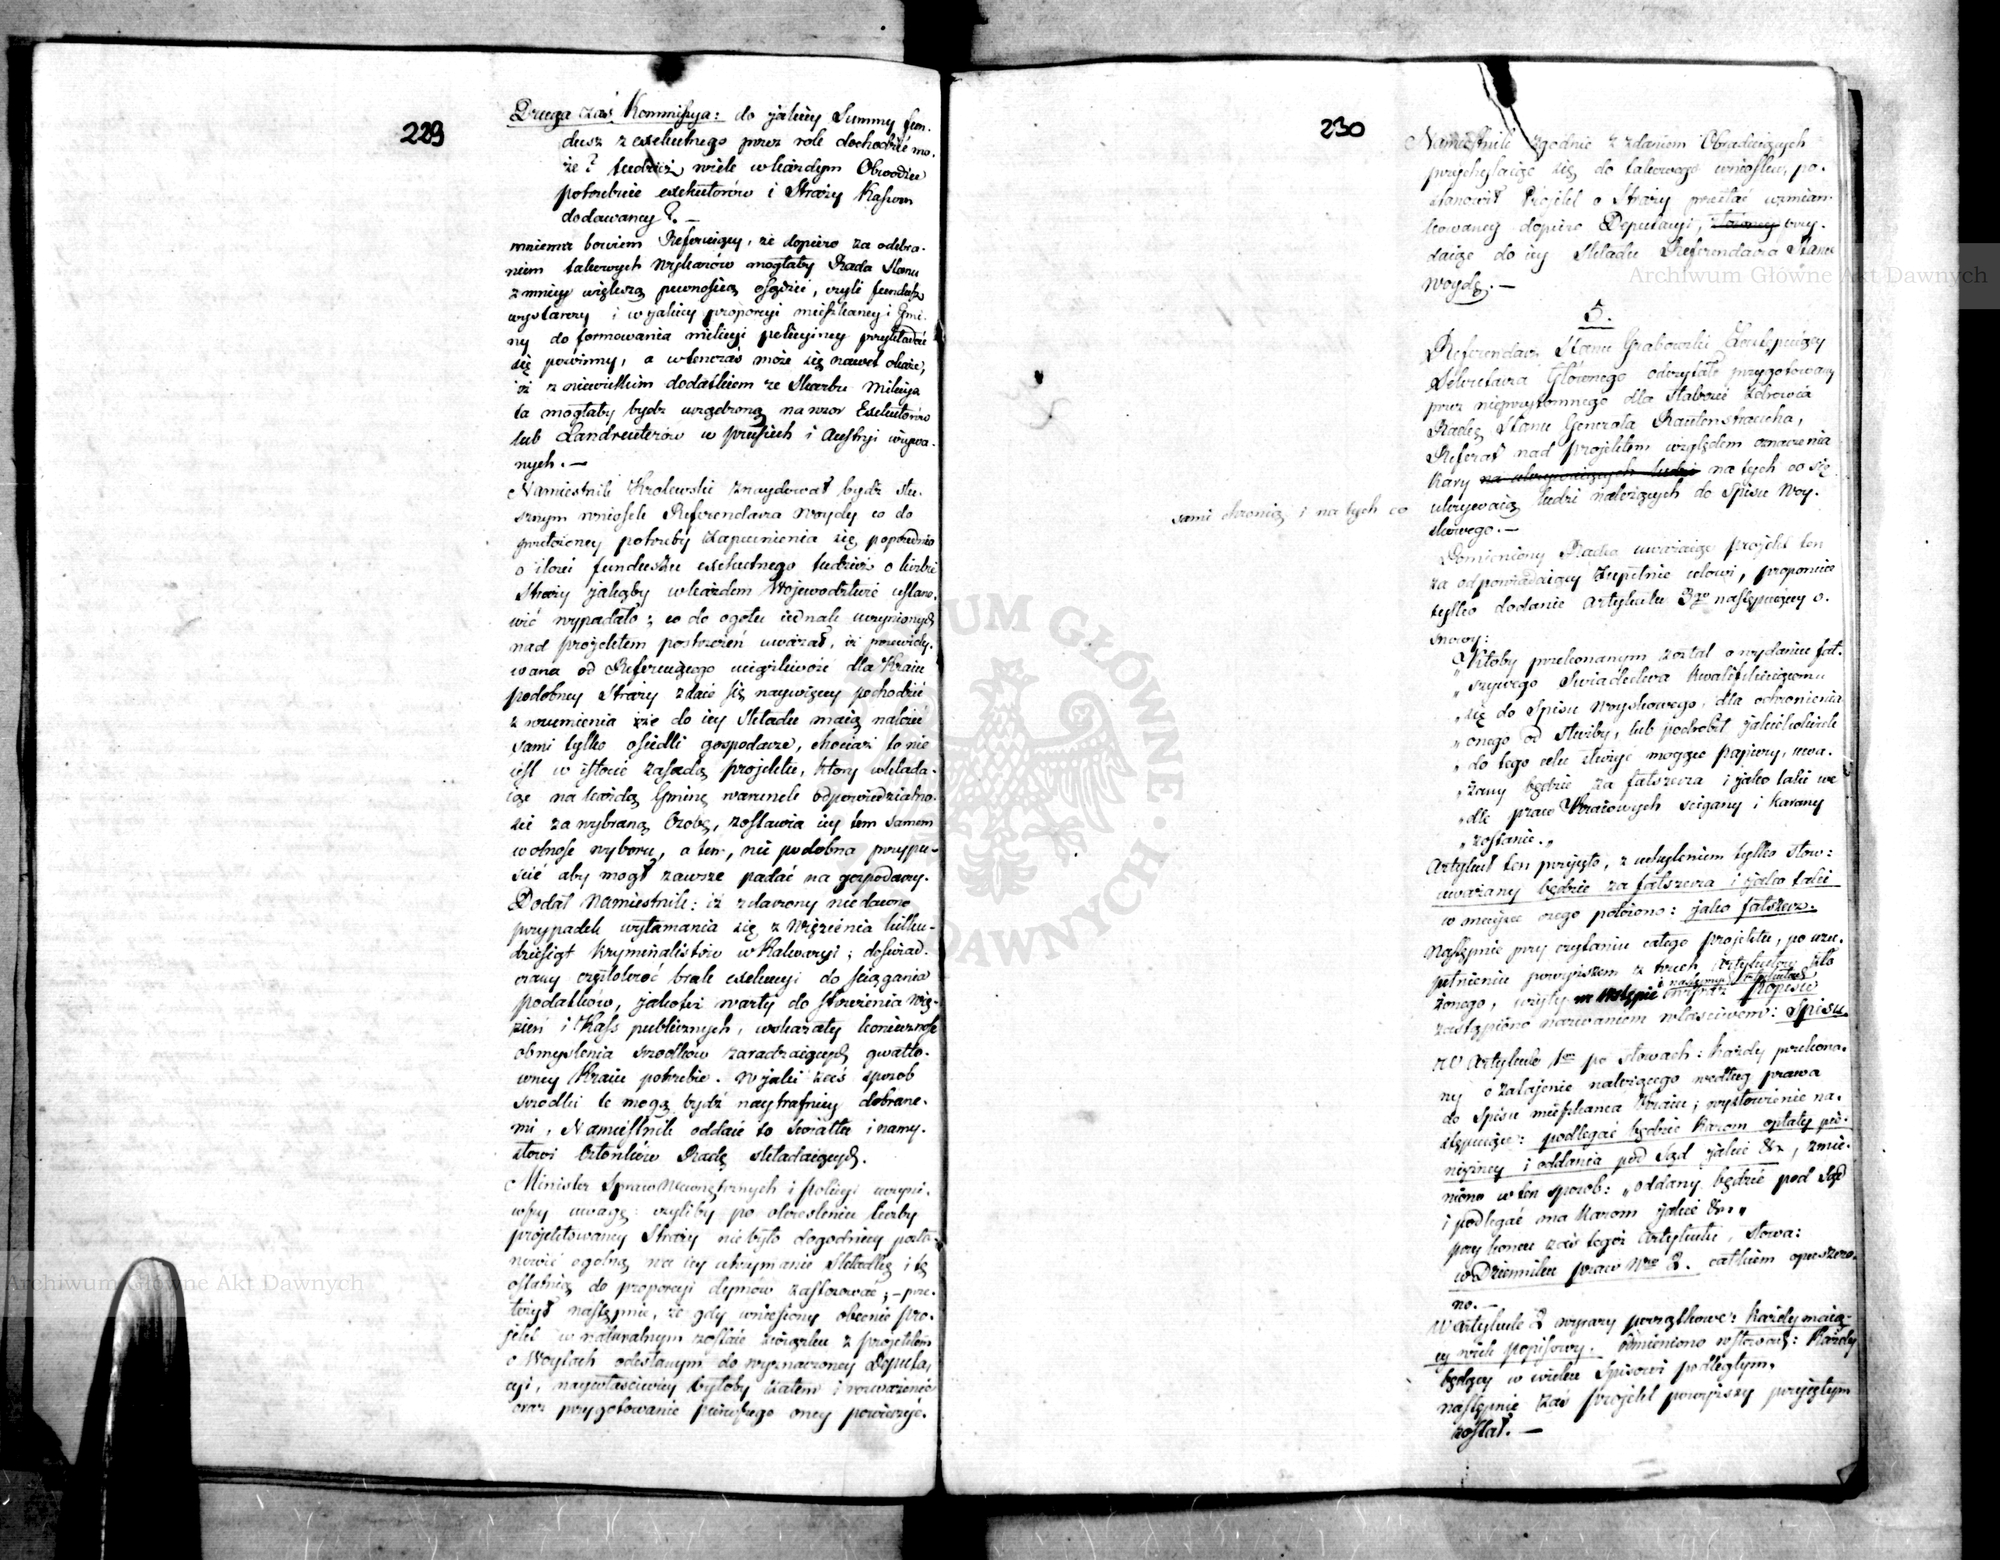 229
Druga zaś Kommissya: do jakiey Summy fun-
dusz z exekutnego przez role dochodzić mo-
że? tudzież wiele w każdym Obwodzie
potrzebuie exekutorów i Straży Kassom
dodawaney?. —
mniema bowiem Referuiący, że dopiero za odebra-
niem takowych Wykazów mogłaby Rada Stanu
z mniey większą pewnością osądzić, czyli fundusz
wystarczy i w jakiey proporcyi mieszkańcy i Gmi-
ny do formowania milicyi policyiney przykładać
się powinny, a wtenczas może się nawet okaże,
iż z niewielkim dodatkiem ze Skarbu Milicya
ta mogłaby bydź urządzoną na wzor Exekutorów
lub Landreuterów w Prusiech i Austryi używa-
nych. —
Namiestnik Krolewski znaydował bydź słu-
sznym wniosek Referendarza Woydy co do
przełożoney potrzeby zapewnienia się poprzednio
o ilości funduszu exekutnego tudzież o liczbie
Straży jakaby w każdem Wojewodztwie ustano-
wić wypadało; co do ogółu iednak uczynionych
nad projektem postrzeżeń uważał, iż przewidy-
wana od Referuiącego uciążliwość dla Kraiu
podobney Straży zdaie się naywięcey pochodzić
z rozumienia iże do iey składu maią należeć
sami tylko osiedli gospodarze, chociaż to nie
iest w istocie zasadą projektu, ktory wkłada-
iąc na każdą Gminę warunek odpowiedzialno-
ści za wybraną Osobę, zostawia iey tem samem
wolność wyboru, a ten, nie podobna przypu-
ścić aby mogł zawsze padać na gospodarzy.
Dodał Namiestnik: iż zdarzony niedawno
przypadek wyłamania się z Więzienia kilku-
dziesiąt kryminalistów w Kalwaryi; doświad-
czany częstokroć brak exekucyi do ściągania
podatków, jakoteż warty do strzeżenia wię-
zień i Kass publicznych, wskazały konieczność
obmyślenia srodków zaradzaiących gwałto-
wney Kraiu potrzebie. W jaki zaś sposob
srodki te mogą bydź naytrafniey dobrane-
mi, Namiestnik oddaie to światłu i namy-
słowi Członków Radę składaiących.
Minister Spraw Wewnętrznych i policyi uczyni-
wszy uwagę: czyliby po okresleniu liczby
projektowaney Straży nie było dogodniey posta-
nowić ogolną na iey utrzymanie Składkę i tę
ostatnią do proporcyi dymów zastosować; — prze-
łożył następnie, że gdy wniesiony obecnie Pro-
jekt w naturalnym zostaie związku z projektem
o Woytach odesłanym do wyznaczoney Deputa-
cyi, naywłaściwiey byłoby zatem i rozważenie
oraz przygotowanie ninieyszego oney powierzyć.
230
Namiestnik zgodnie z zdaniem Obraduiących
przychylaiąc się do takowego wniosku, po-
stanowił Projekt o Straży przesłać wzmian-
kowaney dopiero Deputacyi, przy-
daiąc do iey składu Referendarza Stanu
Woydę. —
5.
Referendarz Stanu Grabowski Zastępuiący
Sekretarza Głownego odczytał przygotowany
przez nieprzytomnego dla słabości zdrowia
Radcę Stanu Generała Rautenstraucha,
Referat nad projektem względem oznaczenia
Kary na ukrywaiących ludzi na tych co się
sami chronią i na tych co
ukrywaią ludzi należących do Spisu Woy-
skowego. —
Pomieniony Radca uważaiąc projekt ten
za odpowiadaiący zupełnie celowi, proponuie
tylko dodanie Artykułu 3go następuiącey o-
snowy:
"Ktoby przekonanym został o wydanie fał-
"szywego Swiadectwa kwalifikuiącemu
"się do Spisu Woyskowego, dla ochronienia
"onego od służby, lub podrobił jakiekolwiek
"do tego celu służyć mogące papiery, uwa-
"żany będzie za fałszerza i jako taki we-
"dle praw Kraiowych ścigany i karany
"zostanie."
Artykuł ten przyięto, z uchyleniem tylko słow:
uważany będzie za fałszerza i jako taki
w mieysce czego położono: jako fałszerz.
Następnie przy czytaniu całego projektu, po uzu-
pełnieniu powyższem z trzech Artykułów zło-
żonego, użyty w Wstępie Popisu
zastąpiono nazwaniem właściwem: Spisu.
W Artykule 1m po słowach: każdy przekona-
ny o zataienie należącego według prawa
do Spisu mieszkańca Kraiu; wysłowienie na-
stępuiące: podlegać będzie karom opłaty pie-
niężney i oddania pod Sąd jakie &c, zmie-
niono w ten sposob: "oddany będzie pod Sąd
i podlegać ma karom jakie &c."
przy końcu zaś tegoż Artykułu, słowa:
w Dzienniku praw Nro 2. całkiem opuszczo-
no. —
W Artykule 2 wyrazy początkowe: Każdy maią-
cy wiek popisowy. Zmieniono w słowach: Każdy
będący w wieku Spisowi podległym,
następnie zaś projekt powyższy przyiętym
został. —
Archiwum Główne Akt Dawnych
Archiwum Główne Akt Dawnych
ARCHIWUM GŁÓWNE AKT DAWNYCH